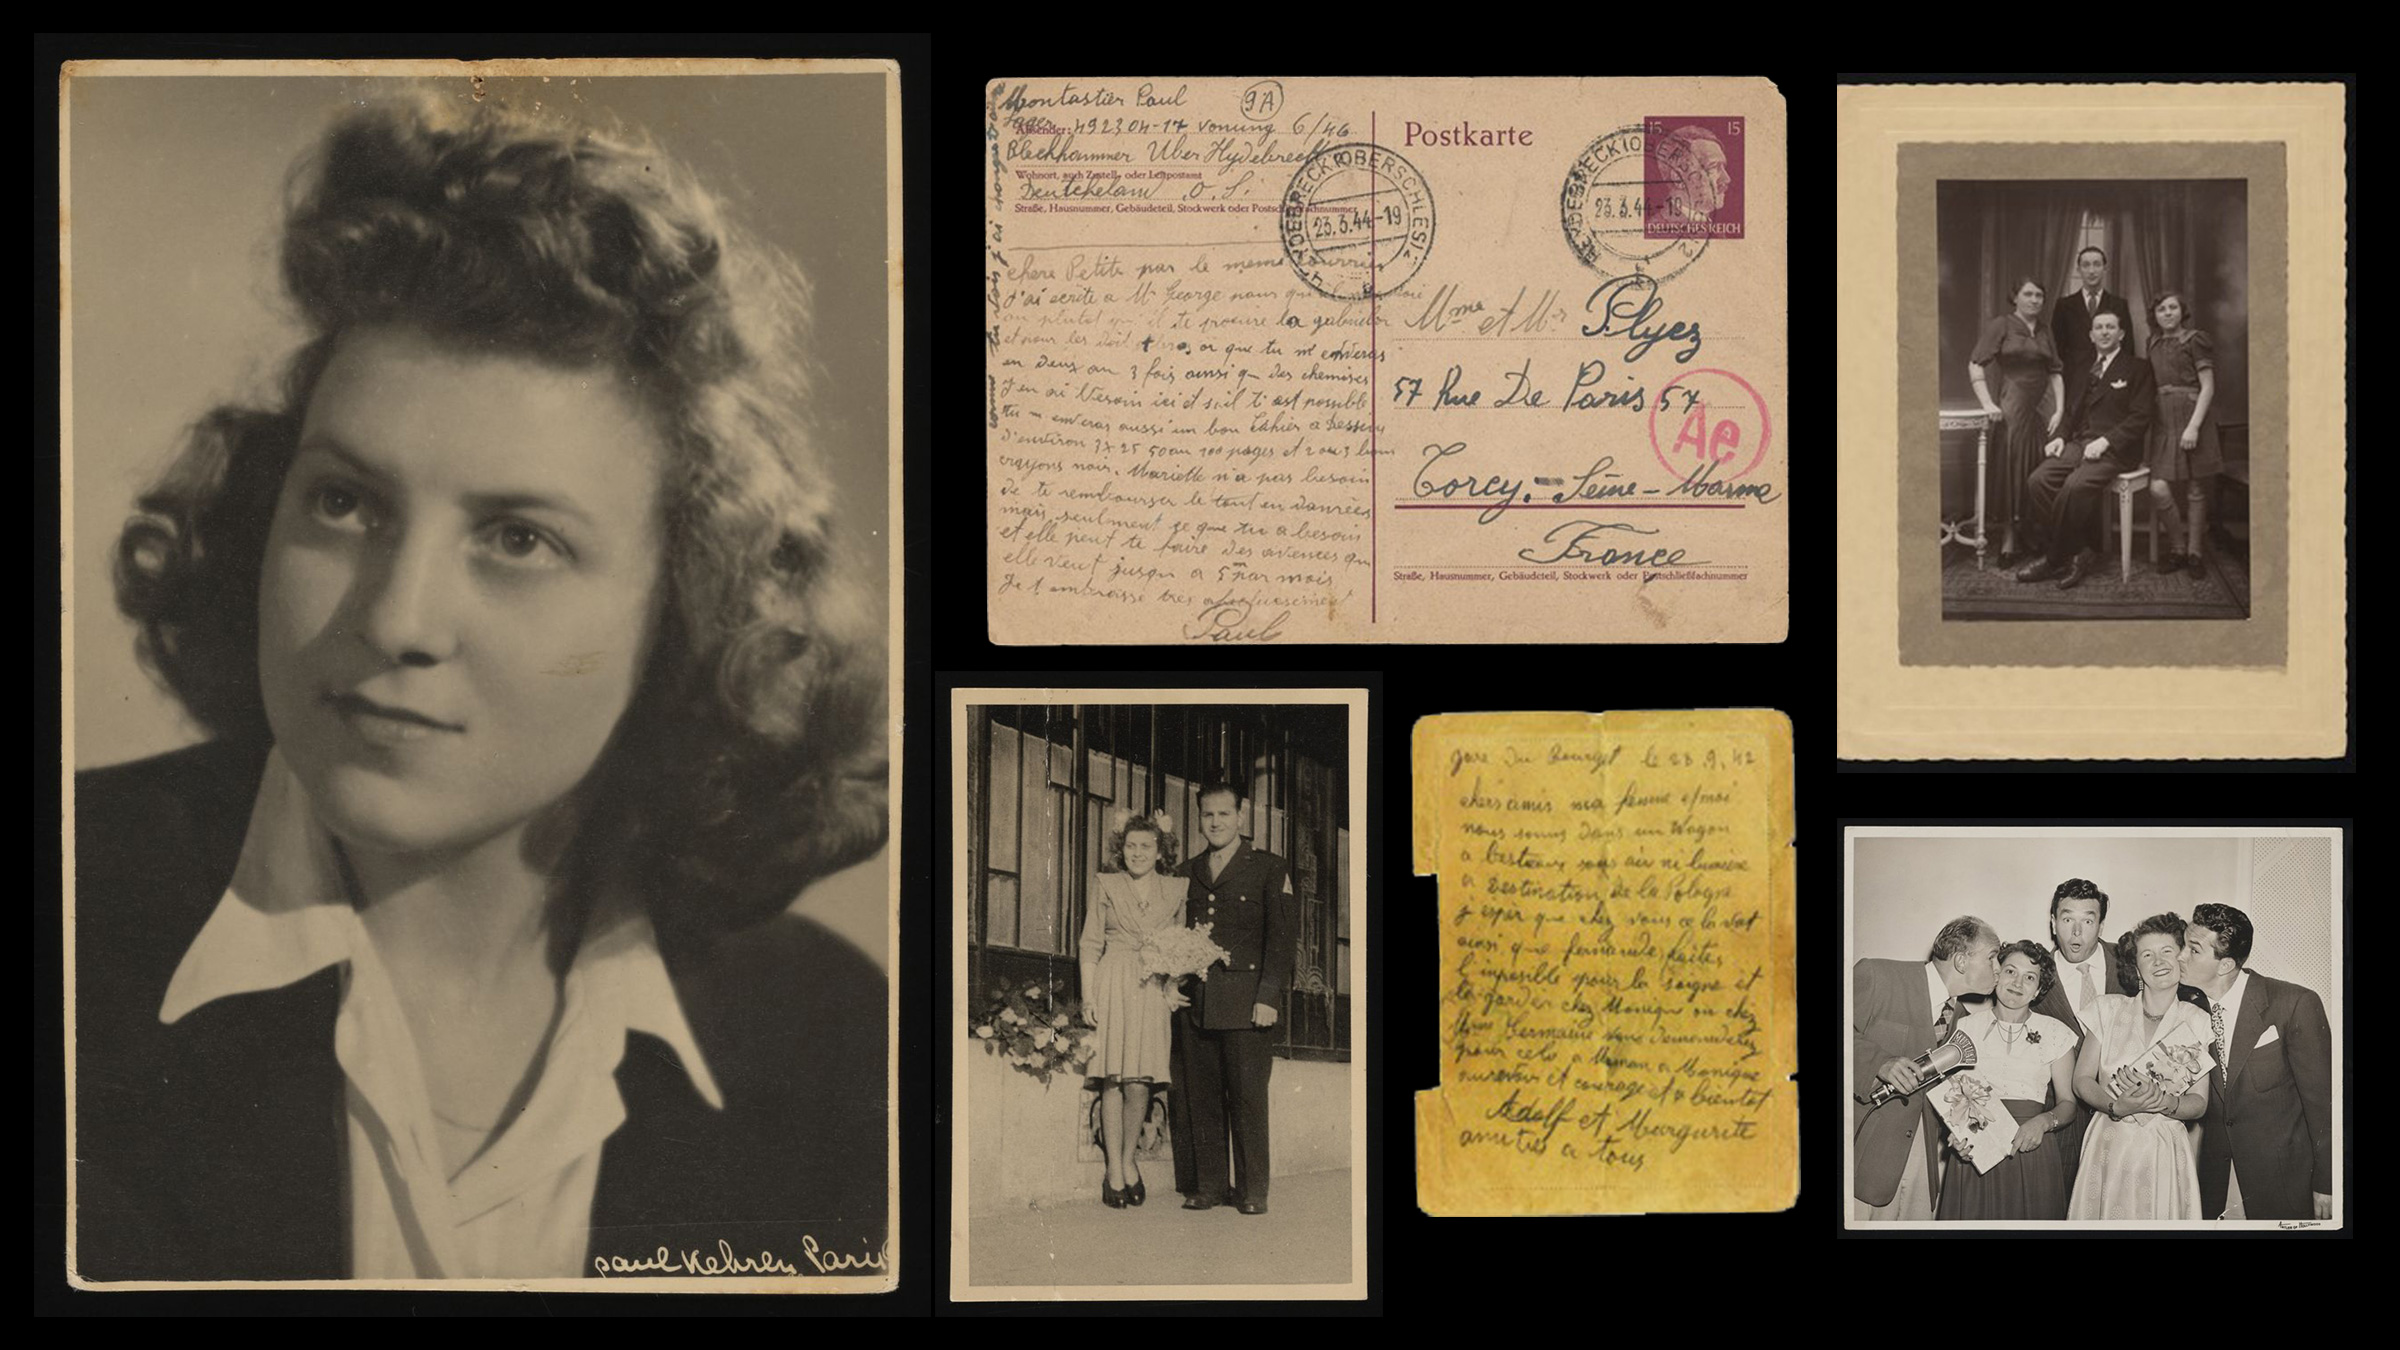 paul Kehren Paris
Montastier Paul 9A
Lager
Absender: 492304-17 vonung 6/46
Blechhammer Uber Hydebreck
Wohnort, auch Zustell- oder Leitpostamt
Deutchelam O. S.
Straße, Hausnummer, Gebäudeteil, Stockwerk oder
HEYDEBRECK (OBERSCHLES)
23.3.44-19
chere Petite par le meme courrier
J'ai ecrite a Mr George pour qu
ou plutot qu'il te procure la
et pour les or que tu m'enveras
en deux ou 3 fois ainsi q des chemises
J'en ai besoin ici et s'il t'est possible
tu m enveras aussi un bon cahier a dessin
d'environ 50 ou 100 pages et 2 ou 3 bons
crayons noir. Mariette n'a pas besoin
de te rembourser le tout en danrées
mais seulment ce que tu a besoin
et elle peut te faire des avences qu
elle veut jusqu a 5 par mois
Je t embrasse tres
Paul
comme tu vois j'ai changé
Postkarte
15 15
DEUTSCHES REICH
23.3.44-19
Mme et Mr Plyez
57 Rue De Paris 57
Ae
Torcy. - Seine - Marne
France
Straße, Hausnummer, Gebäudeteil, Stockwerk oder Postschließfachnummer
gare du Bourget le 28.9.42
chers amis ma femme et moi
nous somms dans un Wagon
a bestiaux sans air ni lumiere
a destination de la Pologne
j'espèr que chez vous ce la vat
ainsi que fernande faites
l'imposible pour la soigne et
la garder chez Monique ou chez
Mme Germaine vous demanderez
pour cela a Maman a Monique
aurevoir et courage et a bientot
Adolf et Margurite
amities a tous
MUTUAL